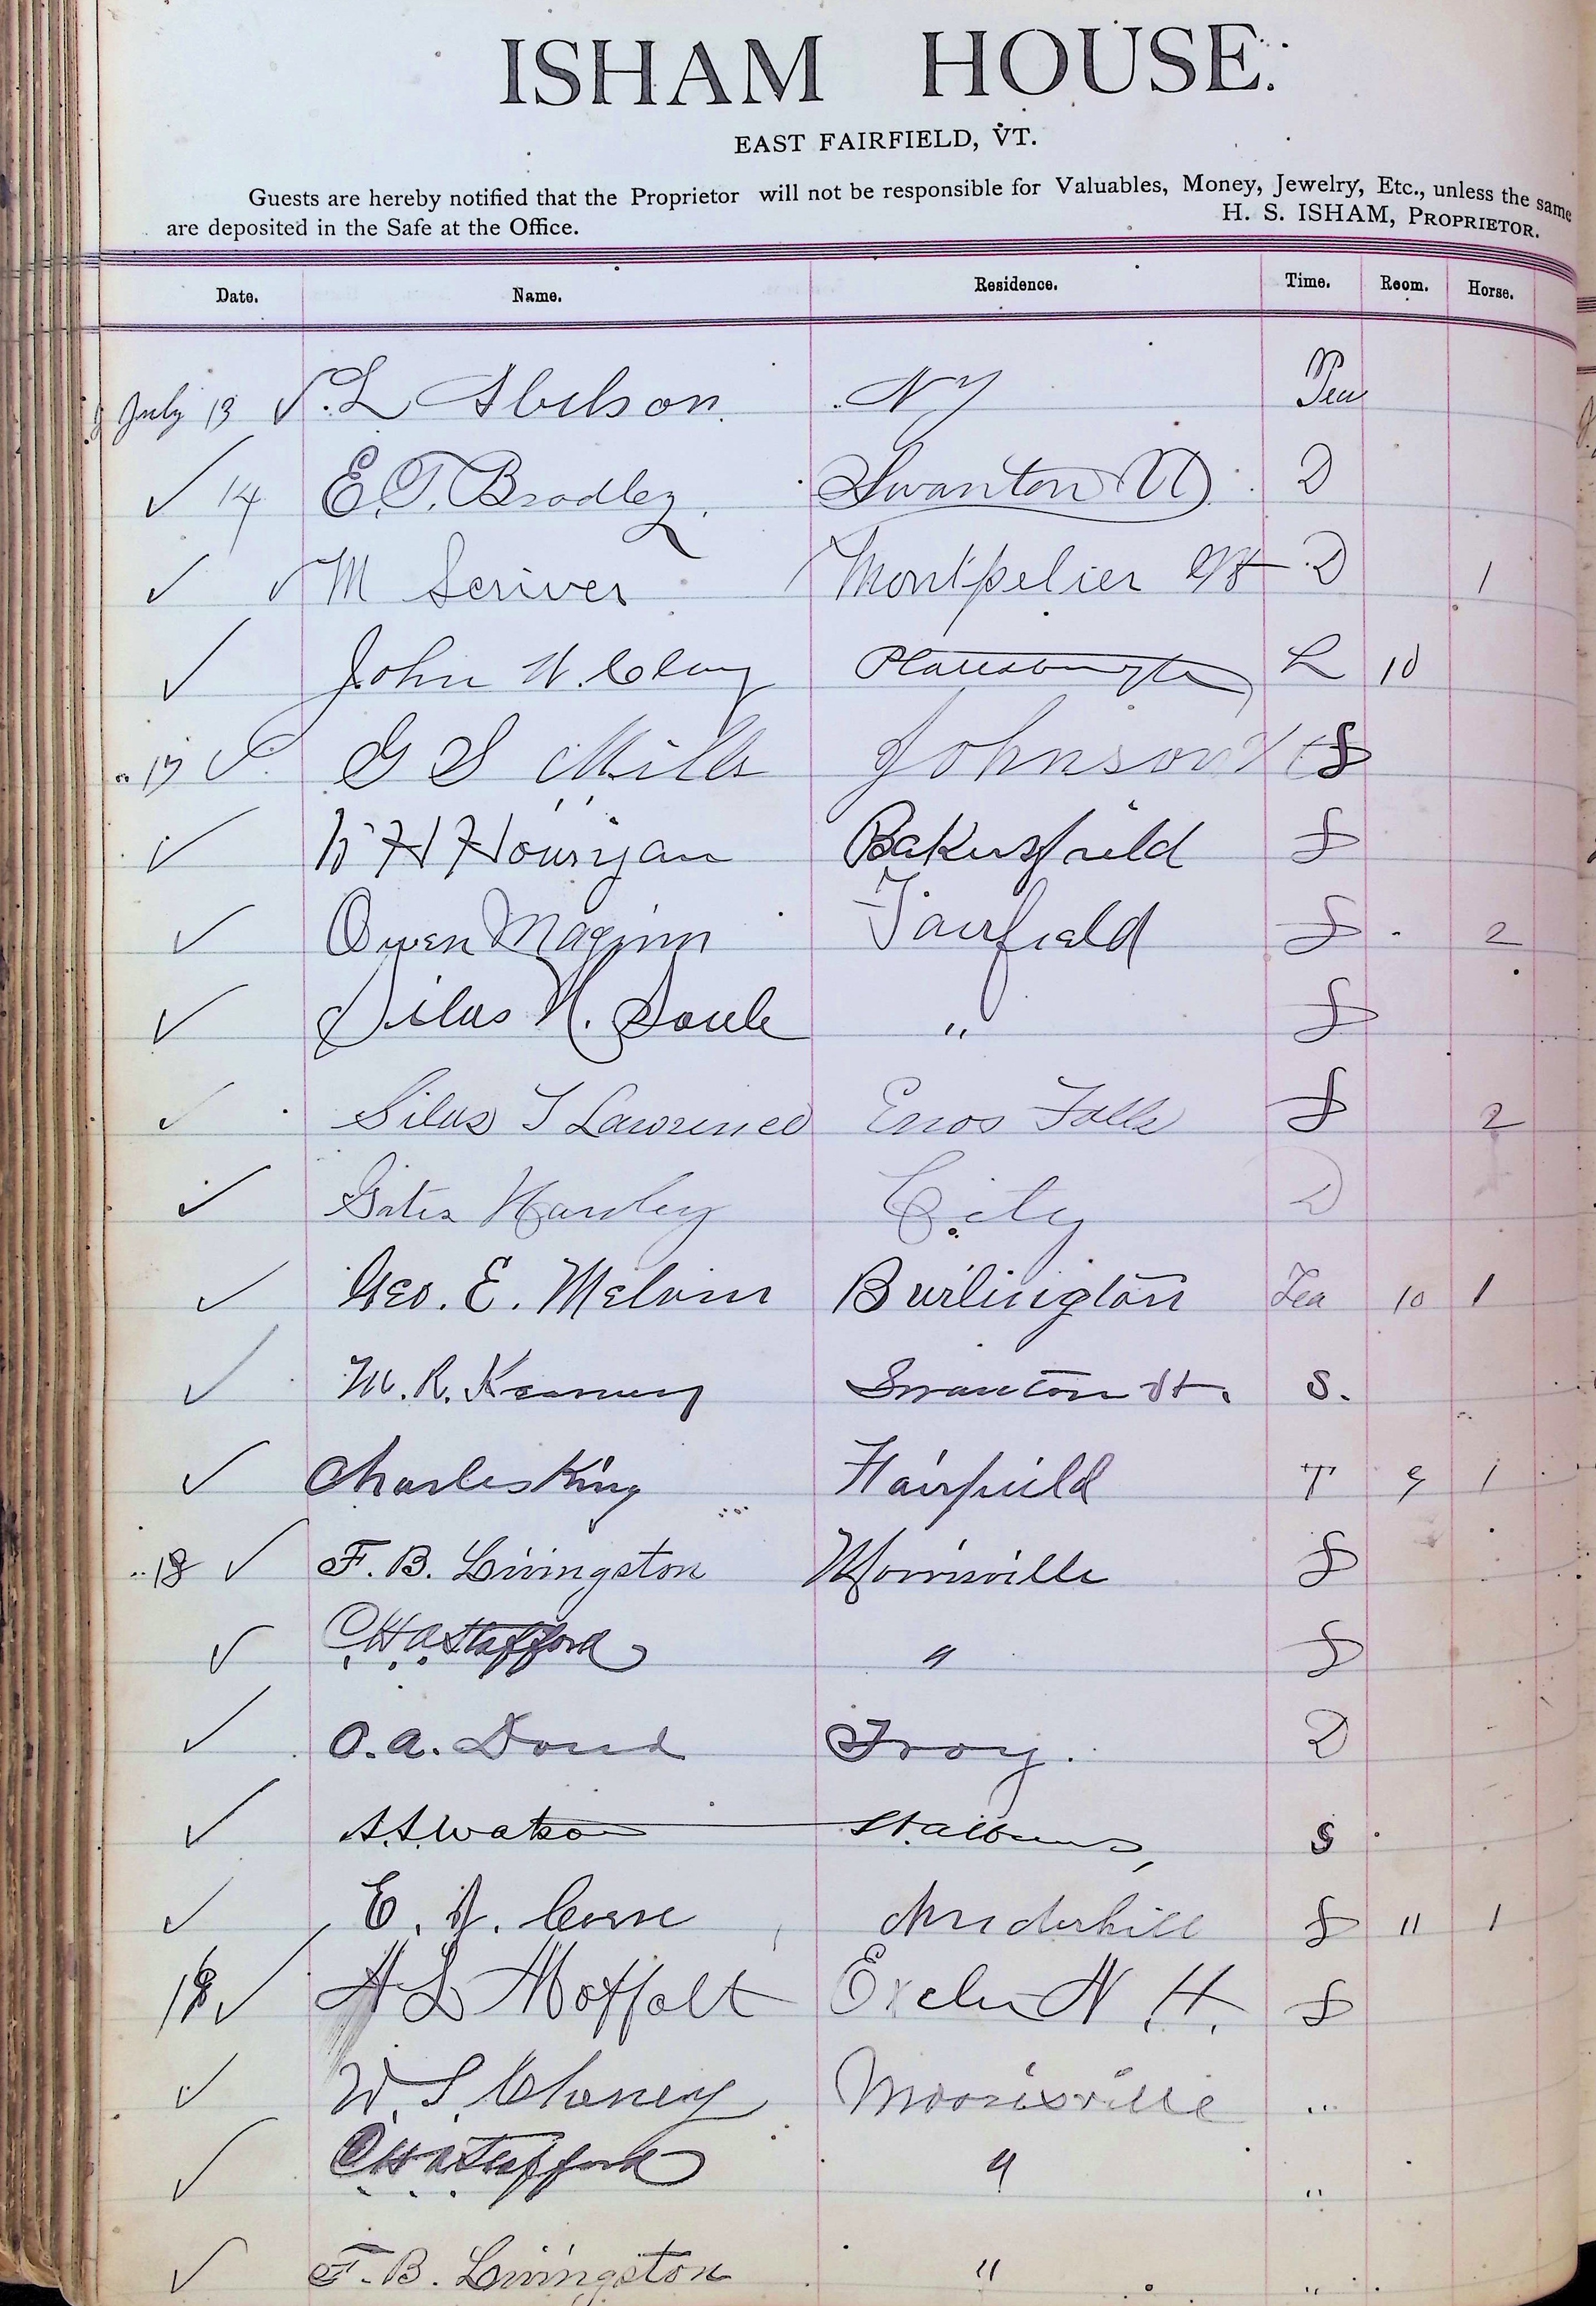 ISHAM HOUSE.
EAST FAIRFIELD, VT.
Guests are hereby notified that the Proprietor will not be responsible for Valuables, Money, Jewelry, Etc., unless the same
are deposited in the Safe at the Office. H. S. ISHAM, PROPRIETOR.
Date. Name. Residence. Time. Room. Horse.
July 13 ✓ L Abelson. NY Tea
✓ 14 E. T. Bradley. Swanton Vt D
✓ ✓ M Scriver Montpelier Vt D 1
✓ John W. Clary Plattsburgh L 10
" 17 ✓ G S Mills Johnson Vt S
✓ W H Hourigan Bakersfield S
✓ Owen Maginn Fairfield S 2
✓ Silas N. Soule " S
✓ Silas T Lawrence Enos Falls S 2
✓ Gates Hawley City D
✓ Geo. E. Melvin Burlington Tea 10 1
✓ M. R. Swanton Vt. S.
✓ Charles King Fairfield T 9 1
" 18 ✓ F. B. Livingston Morrisville S
✓ C H A Stafford " S
✓ O. A. Doud Troy. D
✓ A. A. Watson St. Albans, S
✓ E. Underhill S 11 1
✓ H L Moffatt Exeter N. H. S
✓ W. S. Cheney Morrisville "
✓ C H A Stafford " "
✓ F. B. Livingston " "